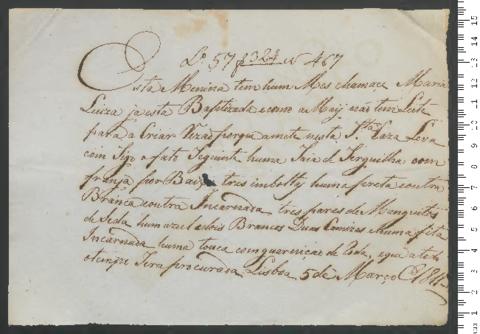 Lº 57 f 324 N 467
Esta Menina tem hum Mes chamace Maria
Luiza ja esta Baptizada e como a Maý não tem Leite
para a Criar Rezão porque a mete nesta Stª Caza Leva
com Sigo o fato Seguinte huma Saia de Serguilha com
franja por Baixo tres huma preta outra
Branca outra Incarnada tres pares de Manguitos
de Seda hum azul e dois Brancos Duas Camizas e huma fita
Incarnada huma touca com de , e qua a todo
o tempo Sera procurada Lisboa 5 de Março